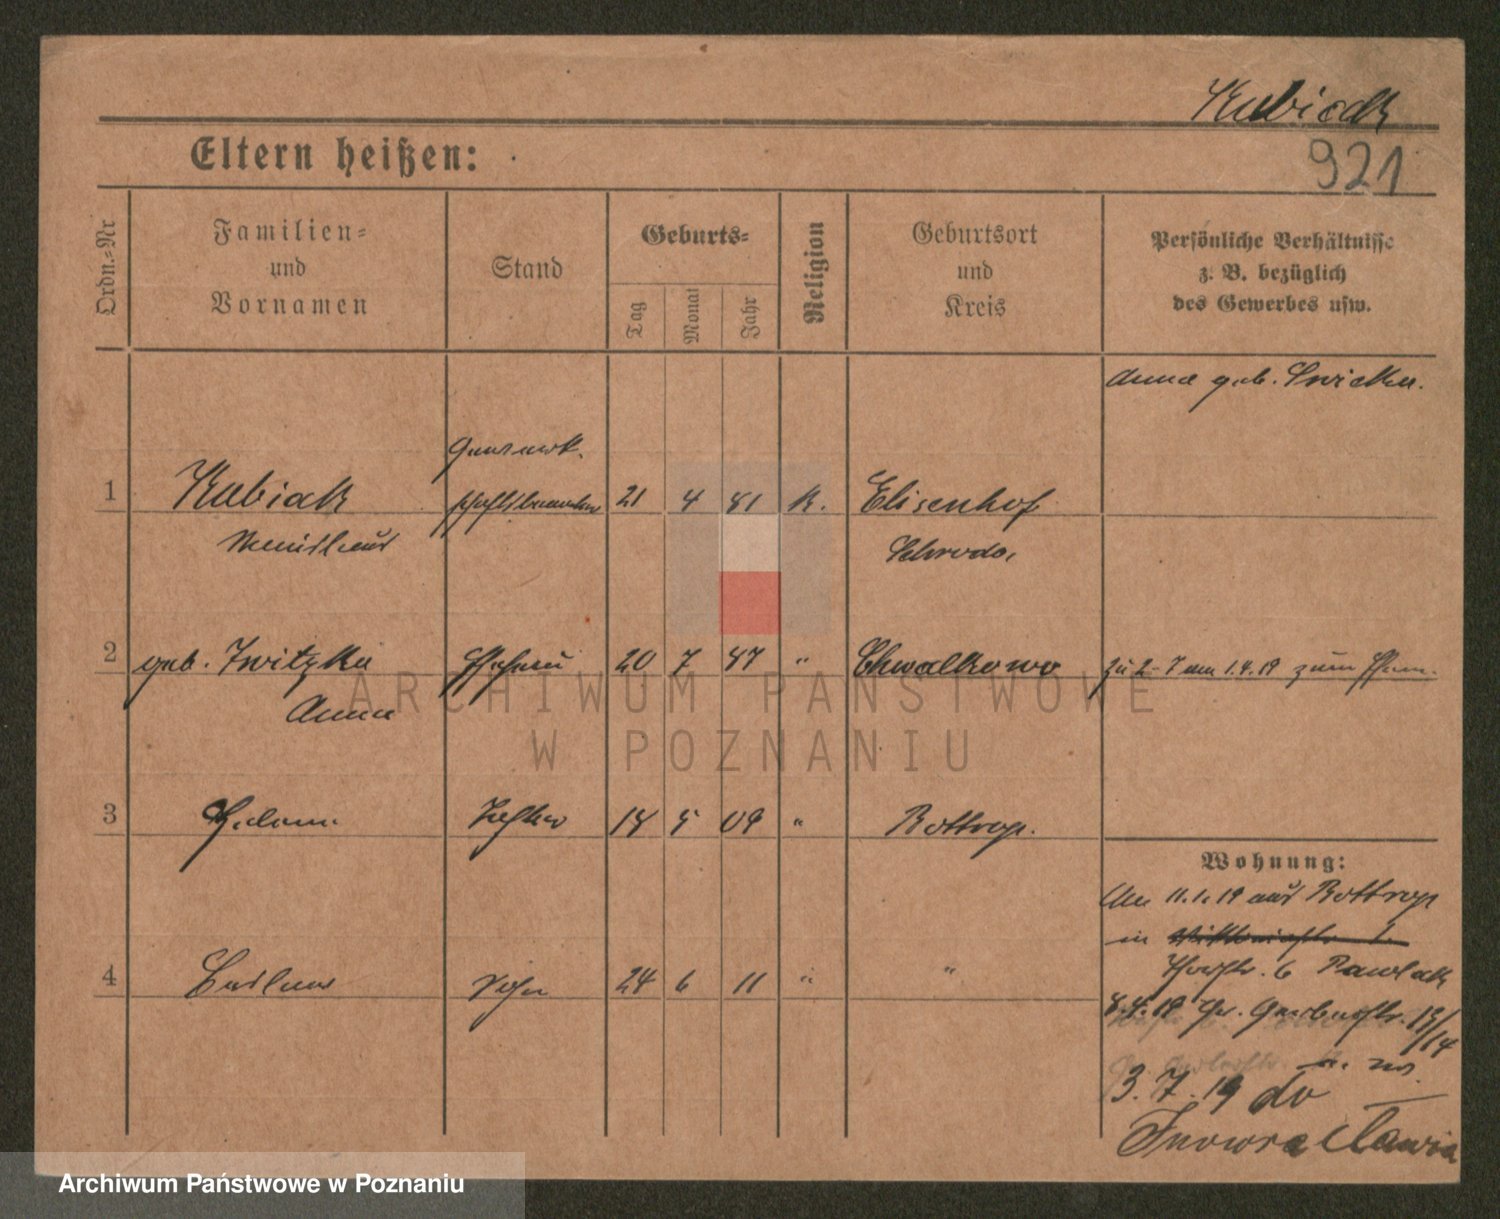 Kubiak
921
Eltern heißen:
Ordn.-Nr
Familien-
und
Vornamen
Stand
Geburts-
Tag
Monat
Jahr
Religion
Geburtsort
und
Kreis
Persönliche Verhältnisse
z. B. bezüglich
des Gewerbes usw.
Anna geb.
1 Kubiak 21 4 81 K. Elisenhof
Schroda
2 geb. Zwitzka Ehefrau 20 7 87 " Chwalkowo zu 2-7 am 1.4.19 zum
Anna
3 Helene Tochter 18 5 09 " Bottrop.
4 Sohn 24 6 11 " "
Wohnung:
Am 11.1.19 aus Bottrop
in
6 Pawlak
8.4.19 Gr. Gerberstr. 13/14
3.7.19 do
Inowraclawia
ARCHIWUM PAŃSTWOWE
W POZNANIU
Archiwum Państwowe w Poznaniu